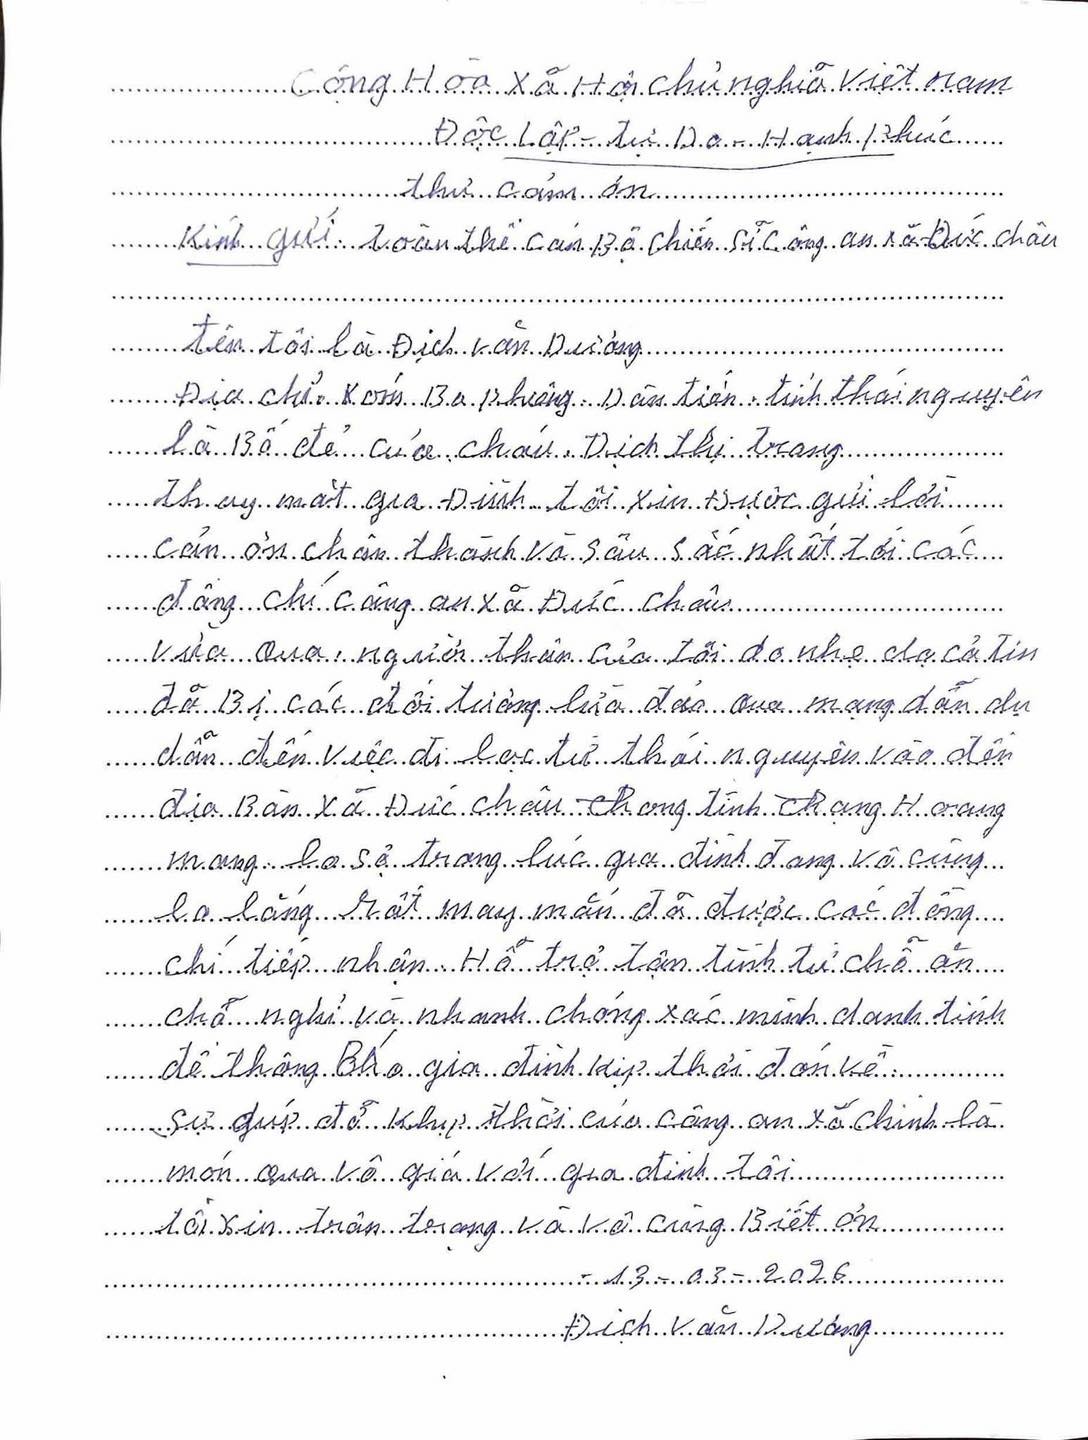 Cộng Hòa xã Hội chủ nghĩa việt nam
Độc Lập - tự Do - Hạnh Phúc
thư cảm ơn
Kính gửi toàn thể cán Bộ chiến sĩ công an xã Đức châu
tên tôi là Địch văn Dương
Địa chỉ. xóm Ba Phương. Dân tiến. tỉnh thái nguyên
là Bố đẻ của cháu. Địch thị trang
thay mặt gia Đình tôi xin Được gửi lời
cản ơn chân thành và sâu sắc nhất tới các
đồng chí công an xã Đức châu
vừa qua. người thân của tôi do nhẹ dạ cả tin
đã Bị các đối tượng lừa đảo qua mạng dẫn dụ
dẫn đến việc đi lạc từ thái nguyên vào đến
địa Bàn xã Đức châu chong tình chạng Hoang
mang. lo sợ trong lúc gia đình đang vô cùng
lo lắng rất may mắn đã được các đồng
chí tiếp nhận. Hỗ trợ tận tình từ chỗ ăn
chỗ nghỉ và nhanh chóng xác minh danh tính
để thông Báo gia đình kịp thời đón về.
sự giúp đỡ khịp thời của công an xã chính là
món qua vô giá với gia đình tôi
tôi xin trân trọng và vô cùng Biết ơn
- 13 - 03 - 2026
Địch văn Dương